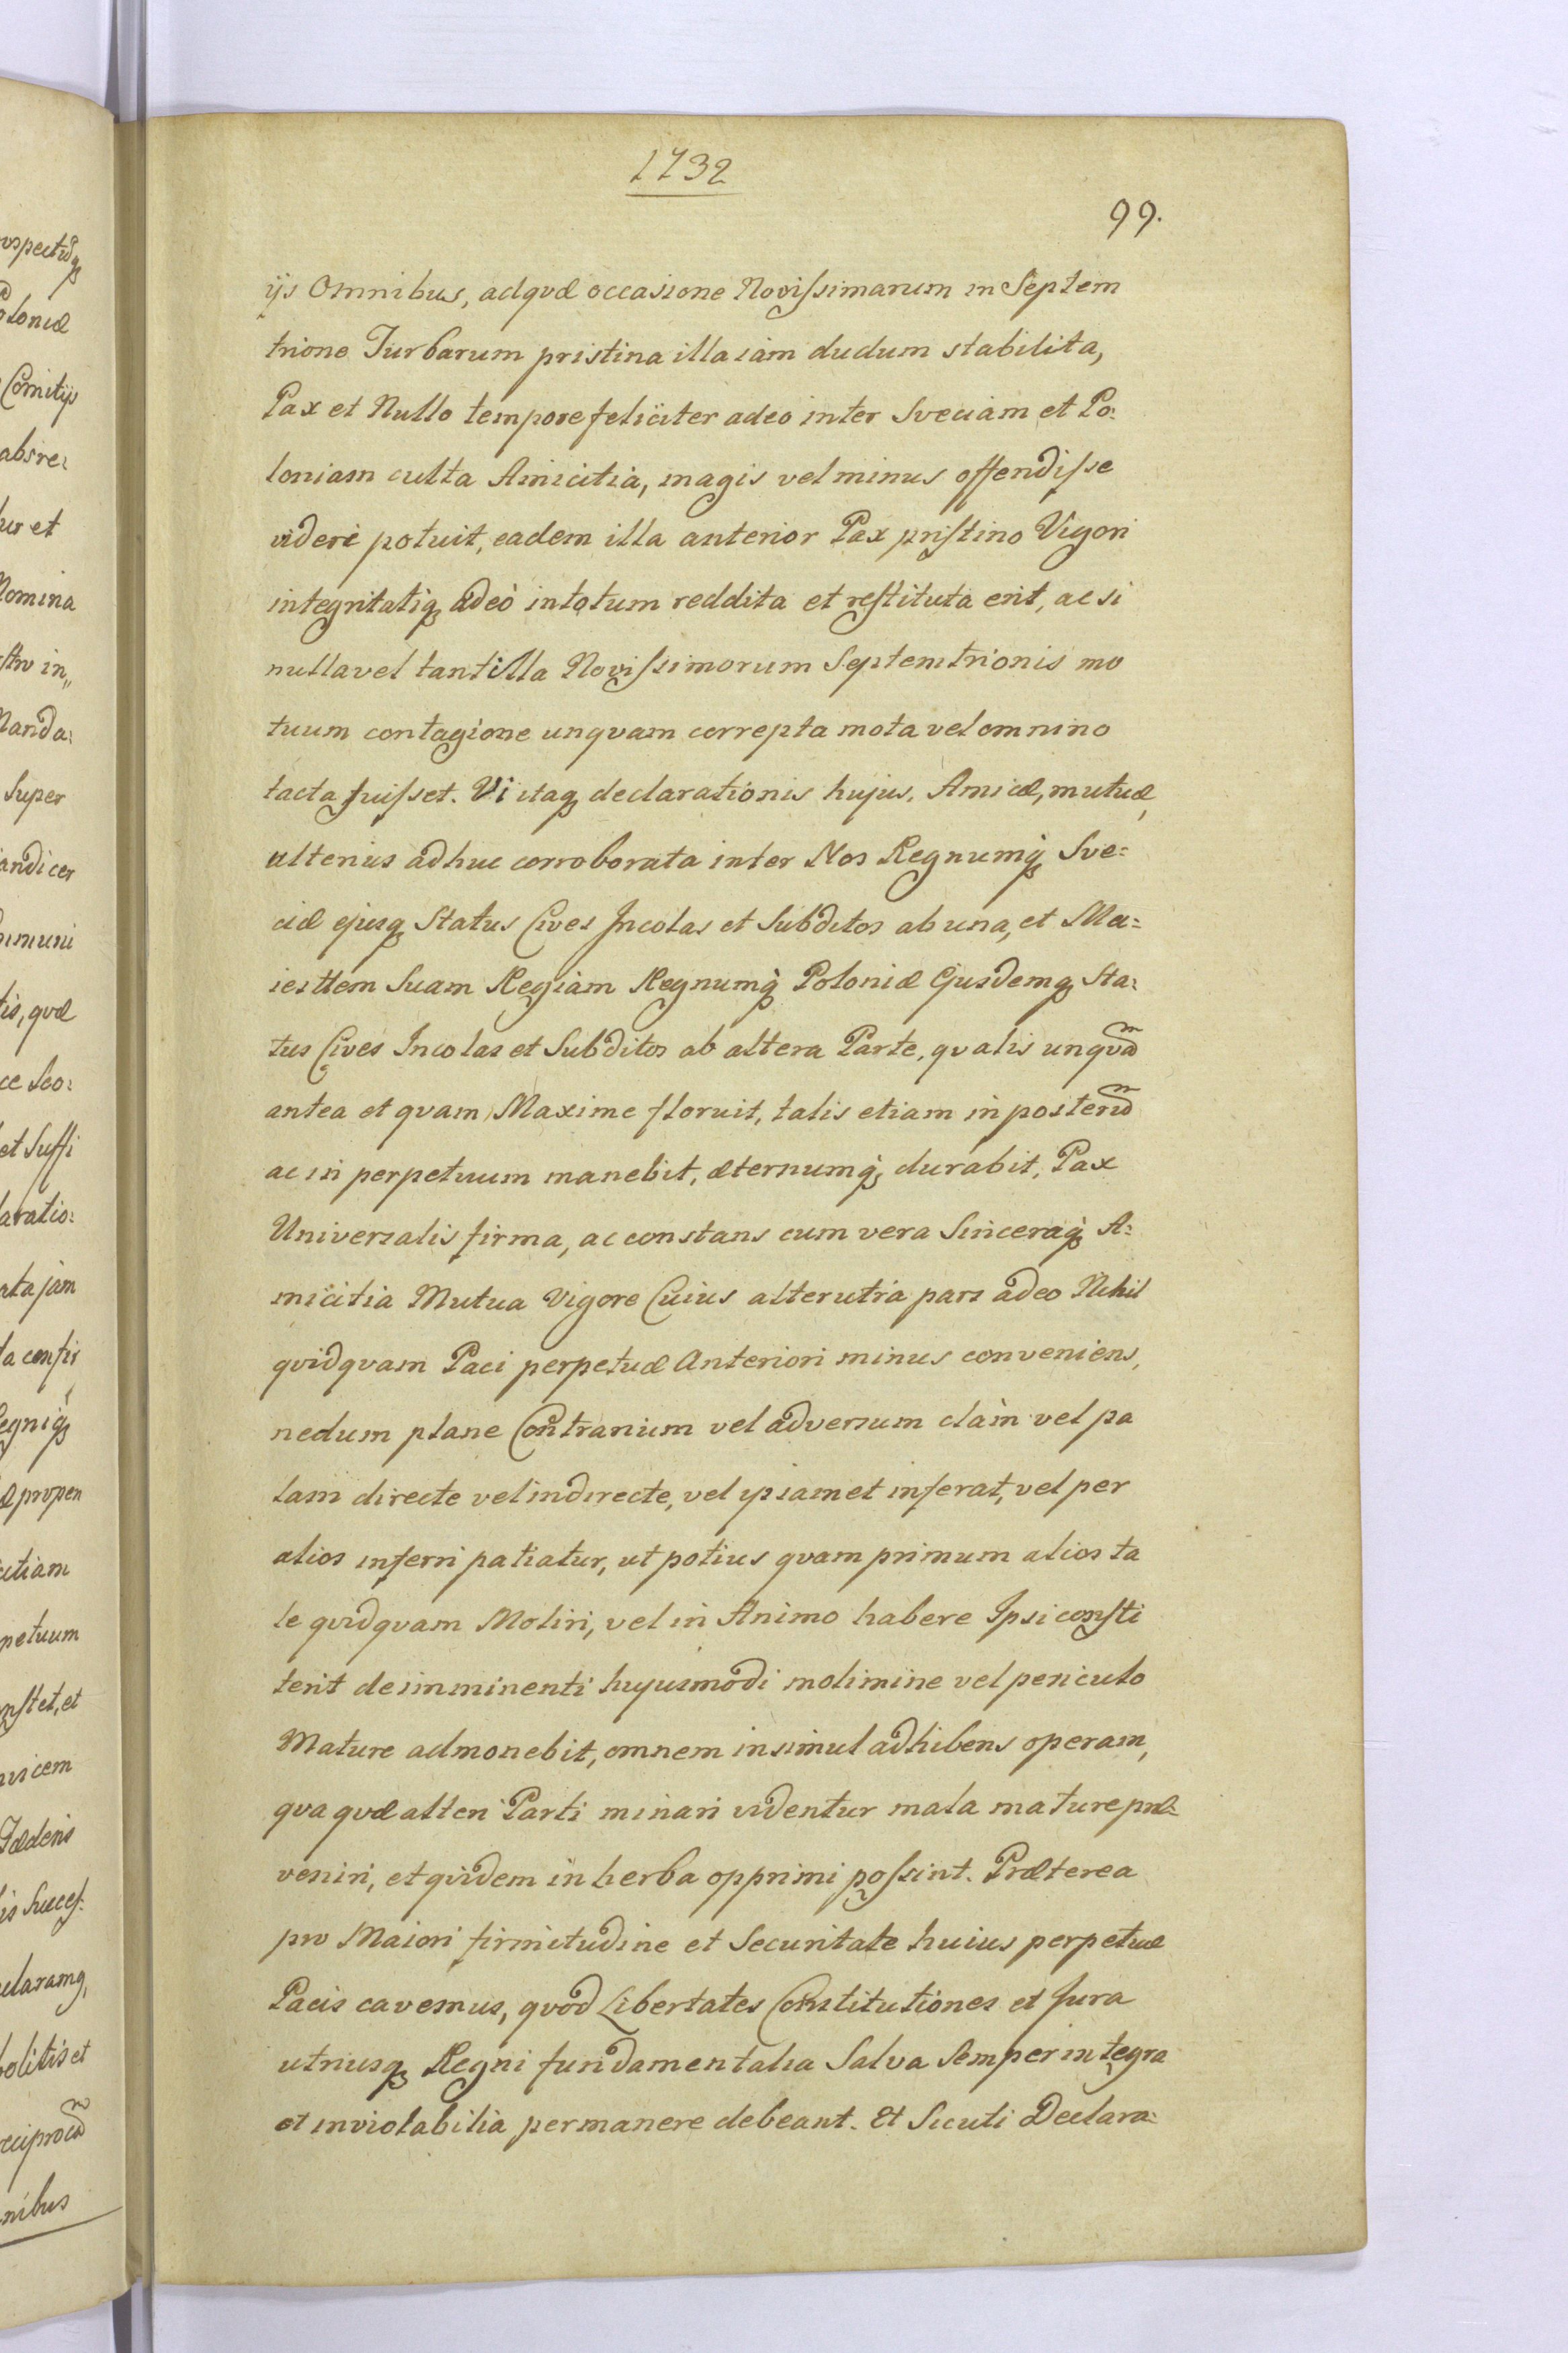 1732
99.
ijs Omnibus, adqvæ occasione Novissimarum in Septem
trione Turbarum pristina illa iàm dudum stabilita,
Pax et Nullo tempore feliciter adeo inter Sveciam et Po:
loniam culta Amicitia, magis vel minus offendisse
videri potuit, eadem illa anterior Pax pristino Vigori
integritatiq; adeò intotum reddita et restituta erit, ac si
nulla vel tantilla Novissimorum Septemtrionis mo
tuum contagione unqvam correpta mota vel omnino
tacta fuisset. Vi itaq; declarationis hujus, Amicæ, mutuæ,
ulterius adhuc corroborata inter Nos Regnumq; Sve:
ciæ ejusq; Status Cives Incolas et Subditos ab una, et Ma:
iesttem Suam Regiam Regnumq; Poloniæ Ejusdemq; Sta:
tus Cives Incolas et Subditos ab altera Parte, qvalis unqva᷉
antea et qvam Maxime floruit, talis etiam in posteru᷉
ac in perpetuum manebit, æternumq; durabit, Pax
Universalis firma, ac constans cum vera Sinceraq; A:
micitia Mutua Vigore Cuius alterutra pars adeo Nihil
qvidqvam Paci perpetuæ Anteriori minus conveniens,
nedum plane Contrarium vel adversum clàm vel pa
lam directe vel indirecte, vel ipsamet inferat, vel per
alios inferri patiatur, ut potius qvam primum alios ta
le qvidqvam Moliri, vel in Animo habere Ipsi consti
terit de imminenti hujusmodi molimine vel periculo
Mature admonebit, omnem insimul adhibens operam,
qva qvæ alteri Parti minari videntur mala mature præ:
veniri, et qvidem in herba opprimi possint. Præterea
pro Maiori firmitudine et Securitate huius perpetuæ
Pacis cavemus, qvod Libertates Constitutiones et Jura
utriusq; Regni fundamentalia Salva Semper integra
et inviolabilia permanere debeant. Et Sicuti Declara: